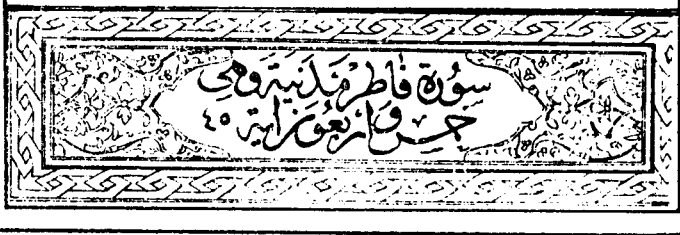 سورة فاطر مدنية وهي
خمس وأربعون آية ٤٥